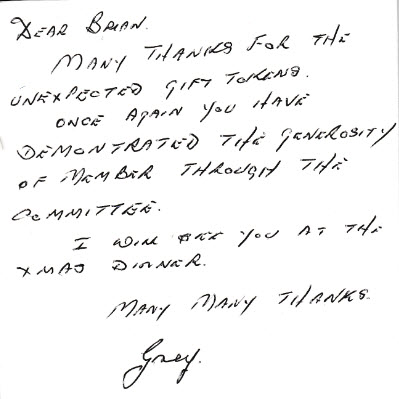 DEAR BRIAN.
MANY THANKS FOR THE
UNEXPECTED GIFT TOKENS.
ONCE AGAIN YOU HAVE
DEMONTRATED THE GENEROSITY
OF MEMBER THROUGH THE
COMMITTEE.
I WILL SEE YOU AT THE
XMAS DINNER.
MANY MANY THANKS.